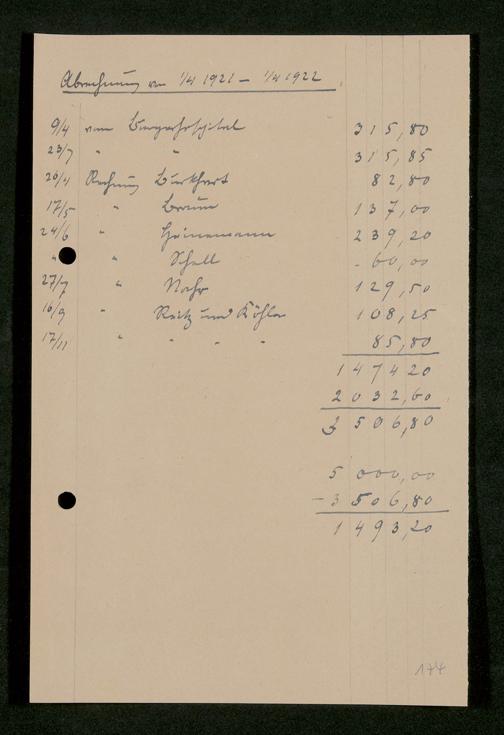 Abrechnung von 1/4 1921 – 1/4 1922.
9/4 vom Bürgerhospital 315,80
23/7 " " 315,85
20/4 Rechnung Burkhart 82,80
17/5 " Braun 137,00
24/6 " Heinemann 239,20
" " Schell - 60,00
27/7 " Nohr 129,50
16/9 " Reitz und Köhler 108,25
17/11 " " " " 85,80
147420
2032,60
3506,80
5000,00
– 3506,80
1493,20
174